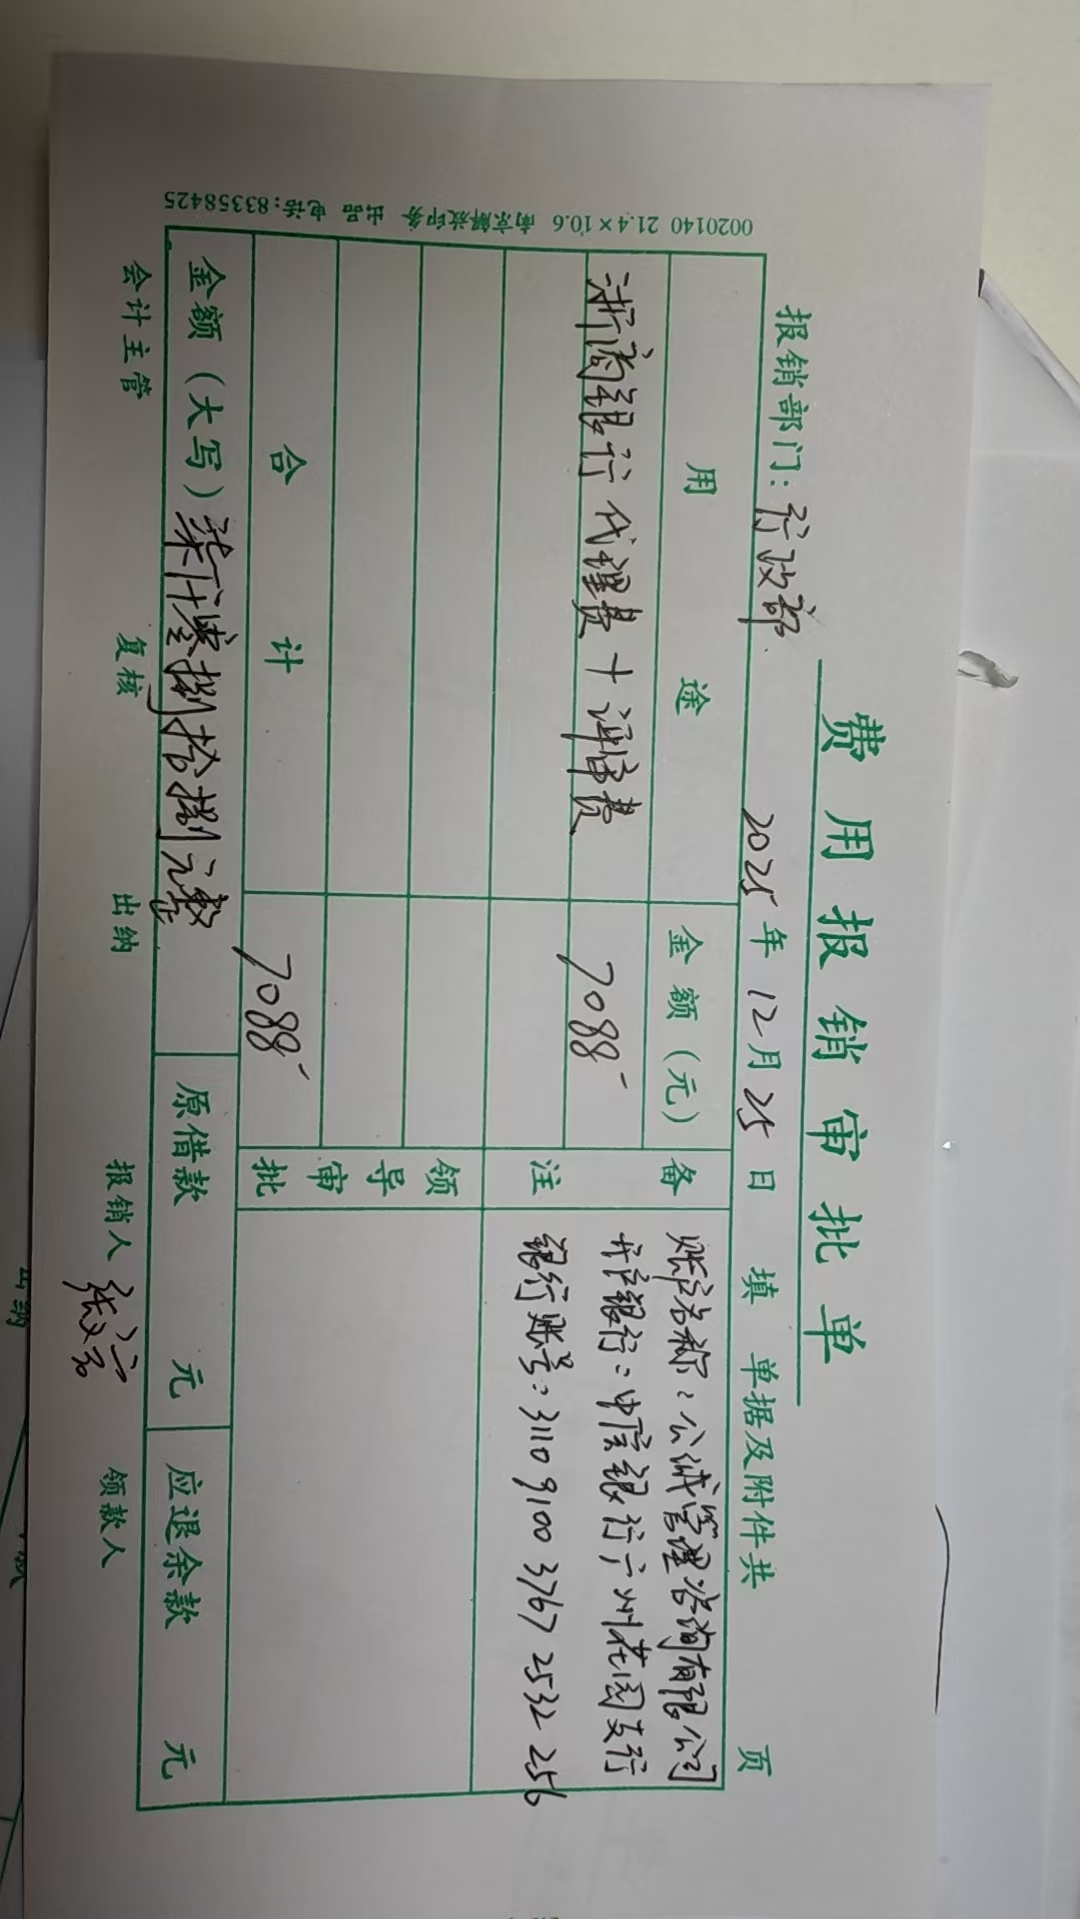 费用报销审批单
报销部门：行政部 2025年12月25日 填 单据及附件共 页
用途 金额（元） 备注
账户名称：公诚管理咨询有限公司
浙商银行代理费+评审费 7088-
开户银行：中信银行广州花园支行
银行账号：3110 9100 3767 2532 256
领导审批
合计 7088-
金额（大写）柒仟零捌拾捌元整 原借款 元 应退余款 元
会计主管 复核 出纳 报销人 领款人
0020140 21.4×10.6 南京解放印务 出品 电话:83358425
出纳